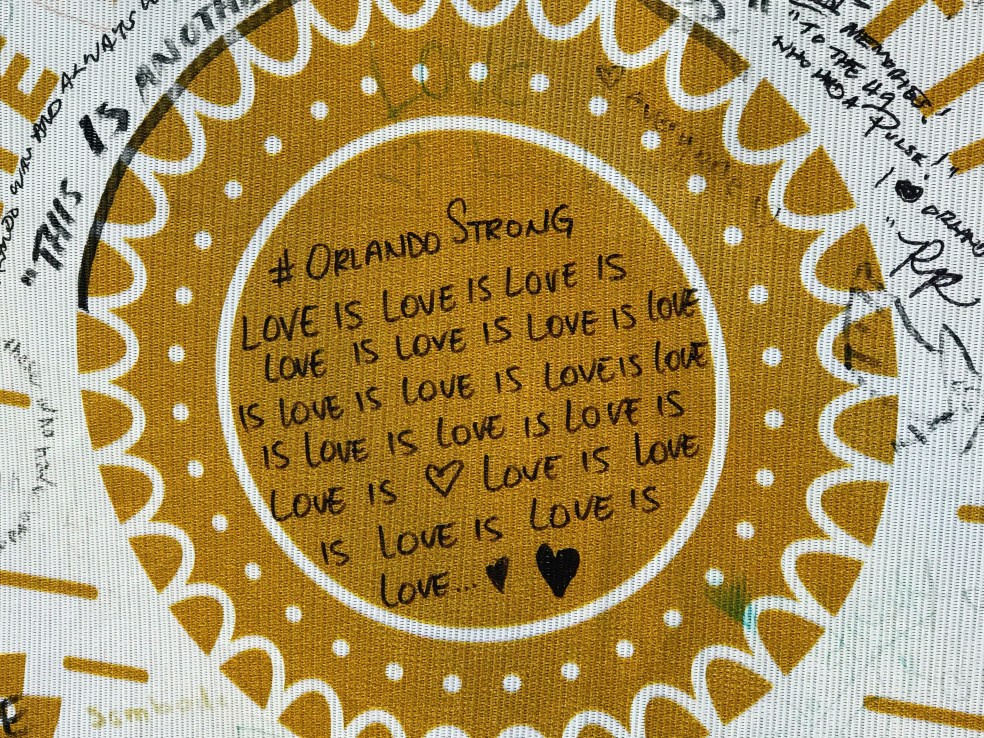 AND ALWAYS
"THIS IS
LOVE
MEMORIES!
"TO THE 49
WHO HAD A PULSE!"
I ♥ ORLANDO
"RR
#ORLANDO STRONG
LOVE IS LOVE IS LOVE IS
LOVE IS LOVE IS LOVE IS LOVE
IS LOVE IS LOVE IS LOVE IS LOVE
IS LOVE IS LOVE IS LOVE IS
LOVE IS ♡ LOVE IS LOVE
IS LOVE IS LOVE IS
LOVE... ♥ ♥
E